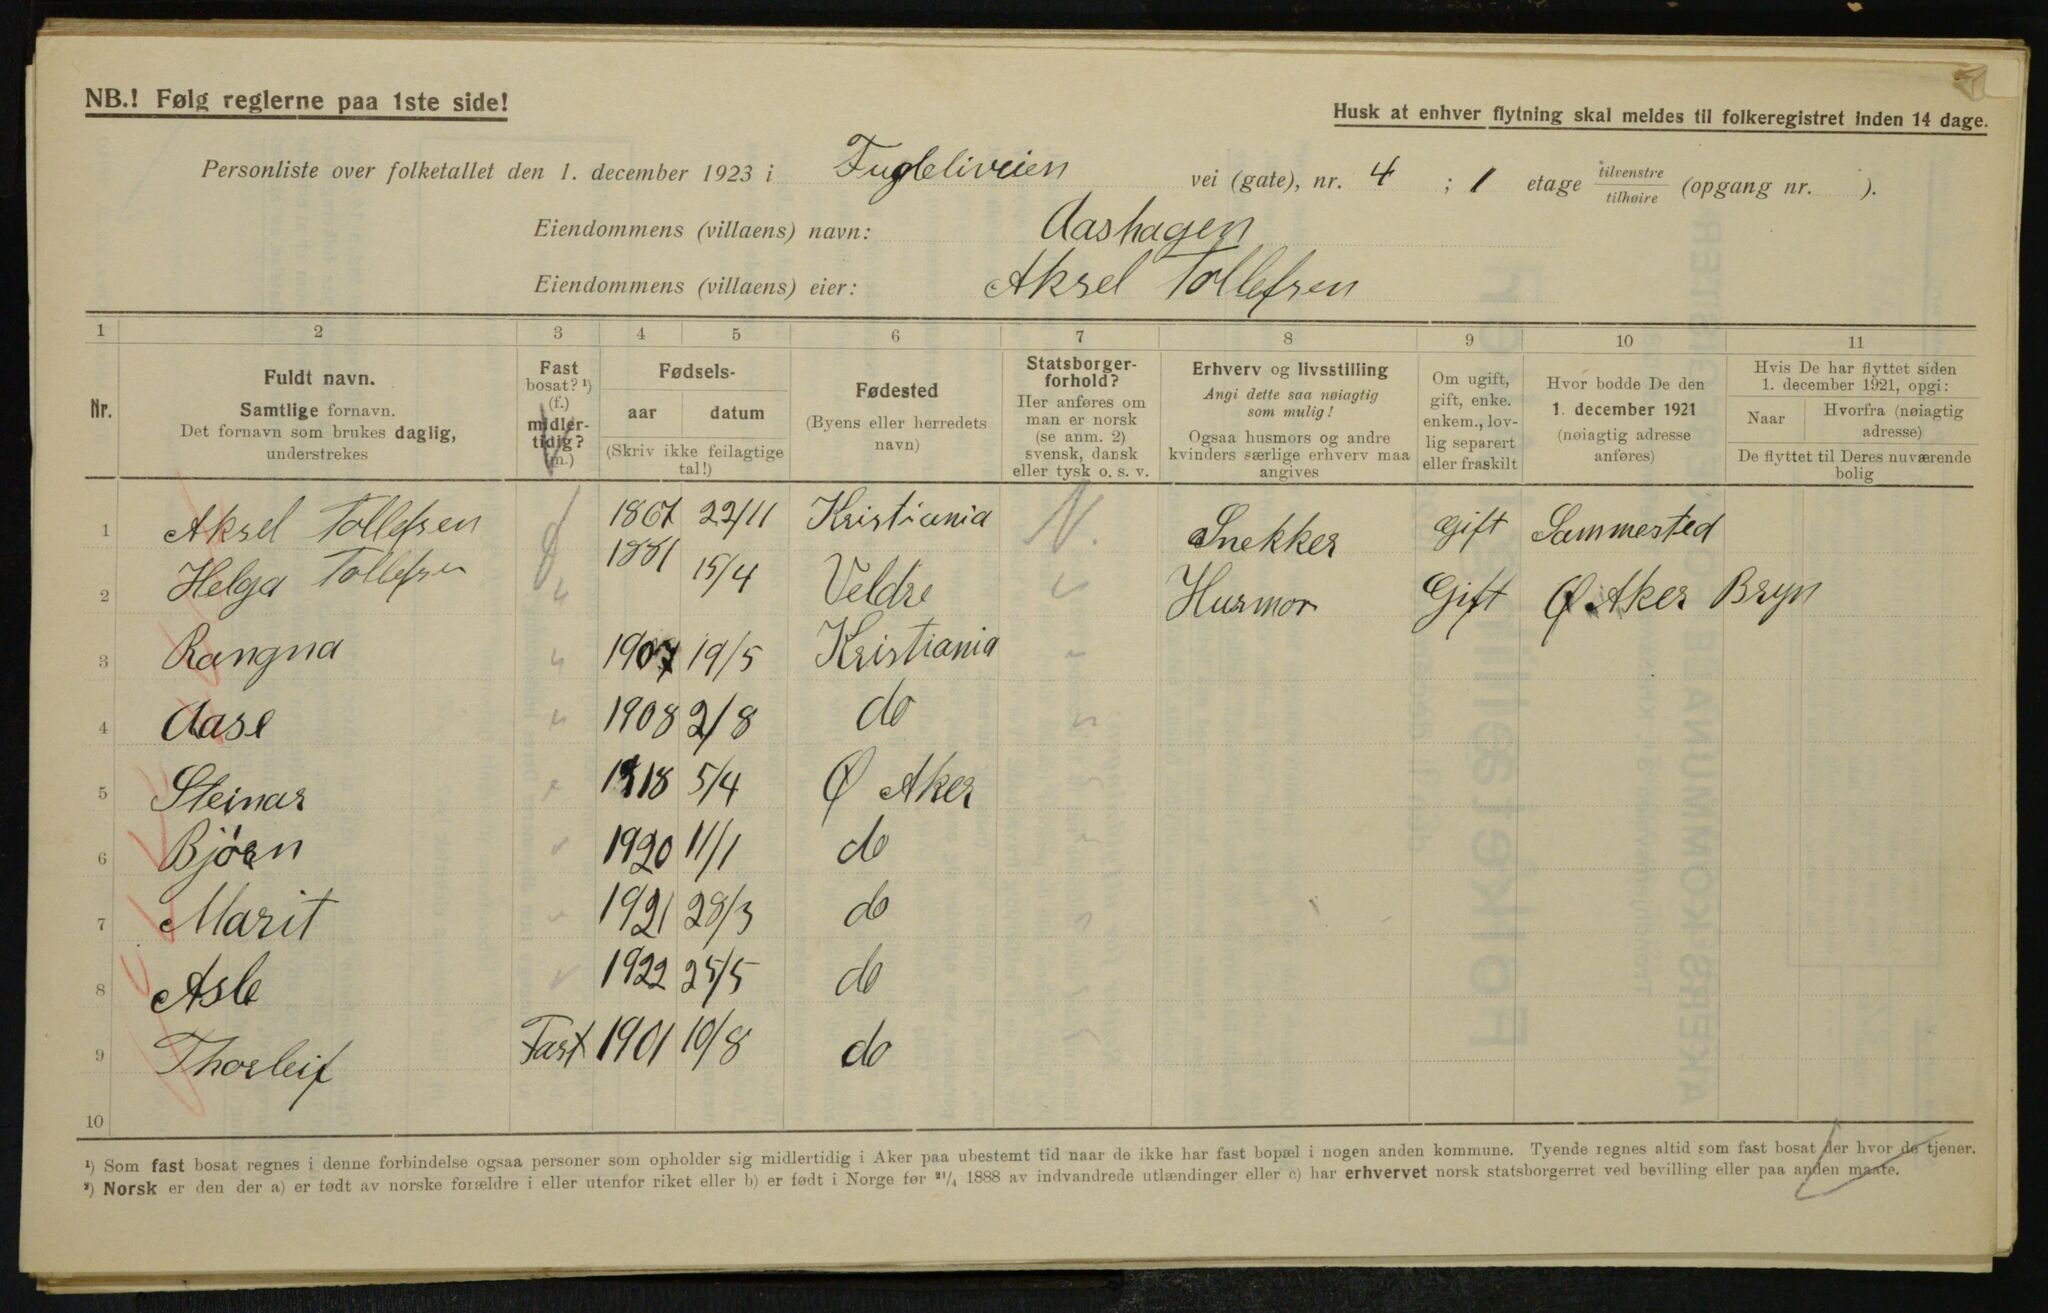 NB.! Følg reglerne paa 1ste side!
Husk at enhver flytning skal meldes til folkeregistret inden 14 dage.
Personliste over folketallet den 1. december 1923 i Fugleliveien vei (gate), nr. 4 ; 1 etage tilvenstre tilhøire (opgang nr. ).
Eiendommens (villaens) navn: Aashagen
Eiendommens (villaens) eier: Aksel Tollefsen
1 2 3 4 5 6 7 8 9 10 11
Nr.
Fuldt navn.
Samtlige fornavn.
Det fornavn som brukes daglig,
understrekes
Fast
bosat? ¹)
(f.)
midler-
tidig?
(m.)
Fødsels-
aar datum
(Skriv ikke feilagtige
tal!)
Fødested
(Byens eller herredets
navn)
Statsborger-
forhold?
Her anføres om
man er norsk
(se anm. 2)
svensk, dansk
eller tysk o. s. v.
Erhverv og livsstilling
Angi dette saa nøiagtig
som mulig!
Ogsaa husmors og andre
kvinders særlige erhverv maa
angives
Om ugift,
gift, enke.
enkem., lov-
lig separert
eller fraskilt
Hvor bodde De den
1. december 1921
(nøiagtig adresse
anføres)
Hvis De har flyttet siden
1. december 1921, opgi:
Naar Hvorfra (nøiagtig
adresse)
De flyttet til Deres nuværende
bolig
1 Aksel Tollefsen f 1867 22/11 Kristiania N. Snekker Gift Sammested
2 Helga Tollefsen " 1881 15/4 Veldre " Husmor Gift Ø Aker Bryn
3 Rangna " 1907 19/5 Kristiania "
4 Aase " 1908 2/8 do "
5 Steinar " 1918 5/4 Ø Aker
6 Bjørn " 1920 11/1 do
7 Marit " 1921 28/3 do
8 Asle " 1922 25/5 do
9 Thorleif Fast 1901 10/8 do
10
¹) Som fast bosat regnes i denne forbindelse ogsaa personer som opholder sig midlertidig i Aker paa ubestemt tid naar de ikke har fast bopæl i nogen anden kommune. Tyende regnes altid som fast bosat der hvor de tjener.
²) Norsk er den der a) er født av norske forældre i eller utenfor riket eller b) er født i Norge før 21/4 1888 av indvandrede utlændinger eller c) har erhvervet norsk statsborgerret ved bevilling eller paa anden maate.